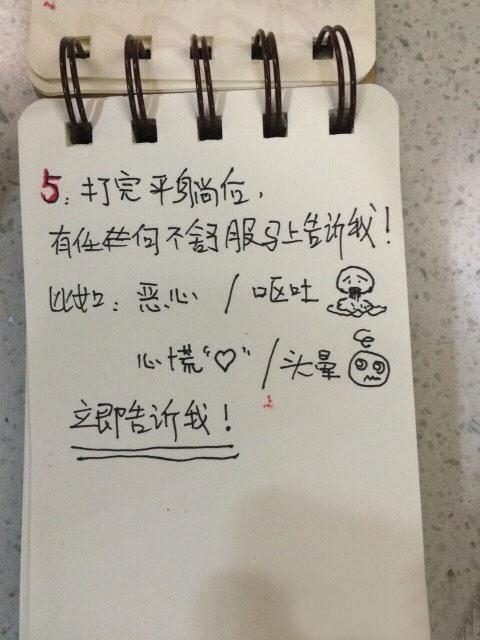 5：打完平身躺位，
有任何不舒服马上告诉我！
比如：恶心 / 呕吐
心慌“♡” / 头晕
立即告诉我！